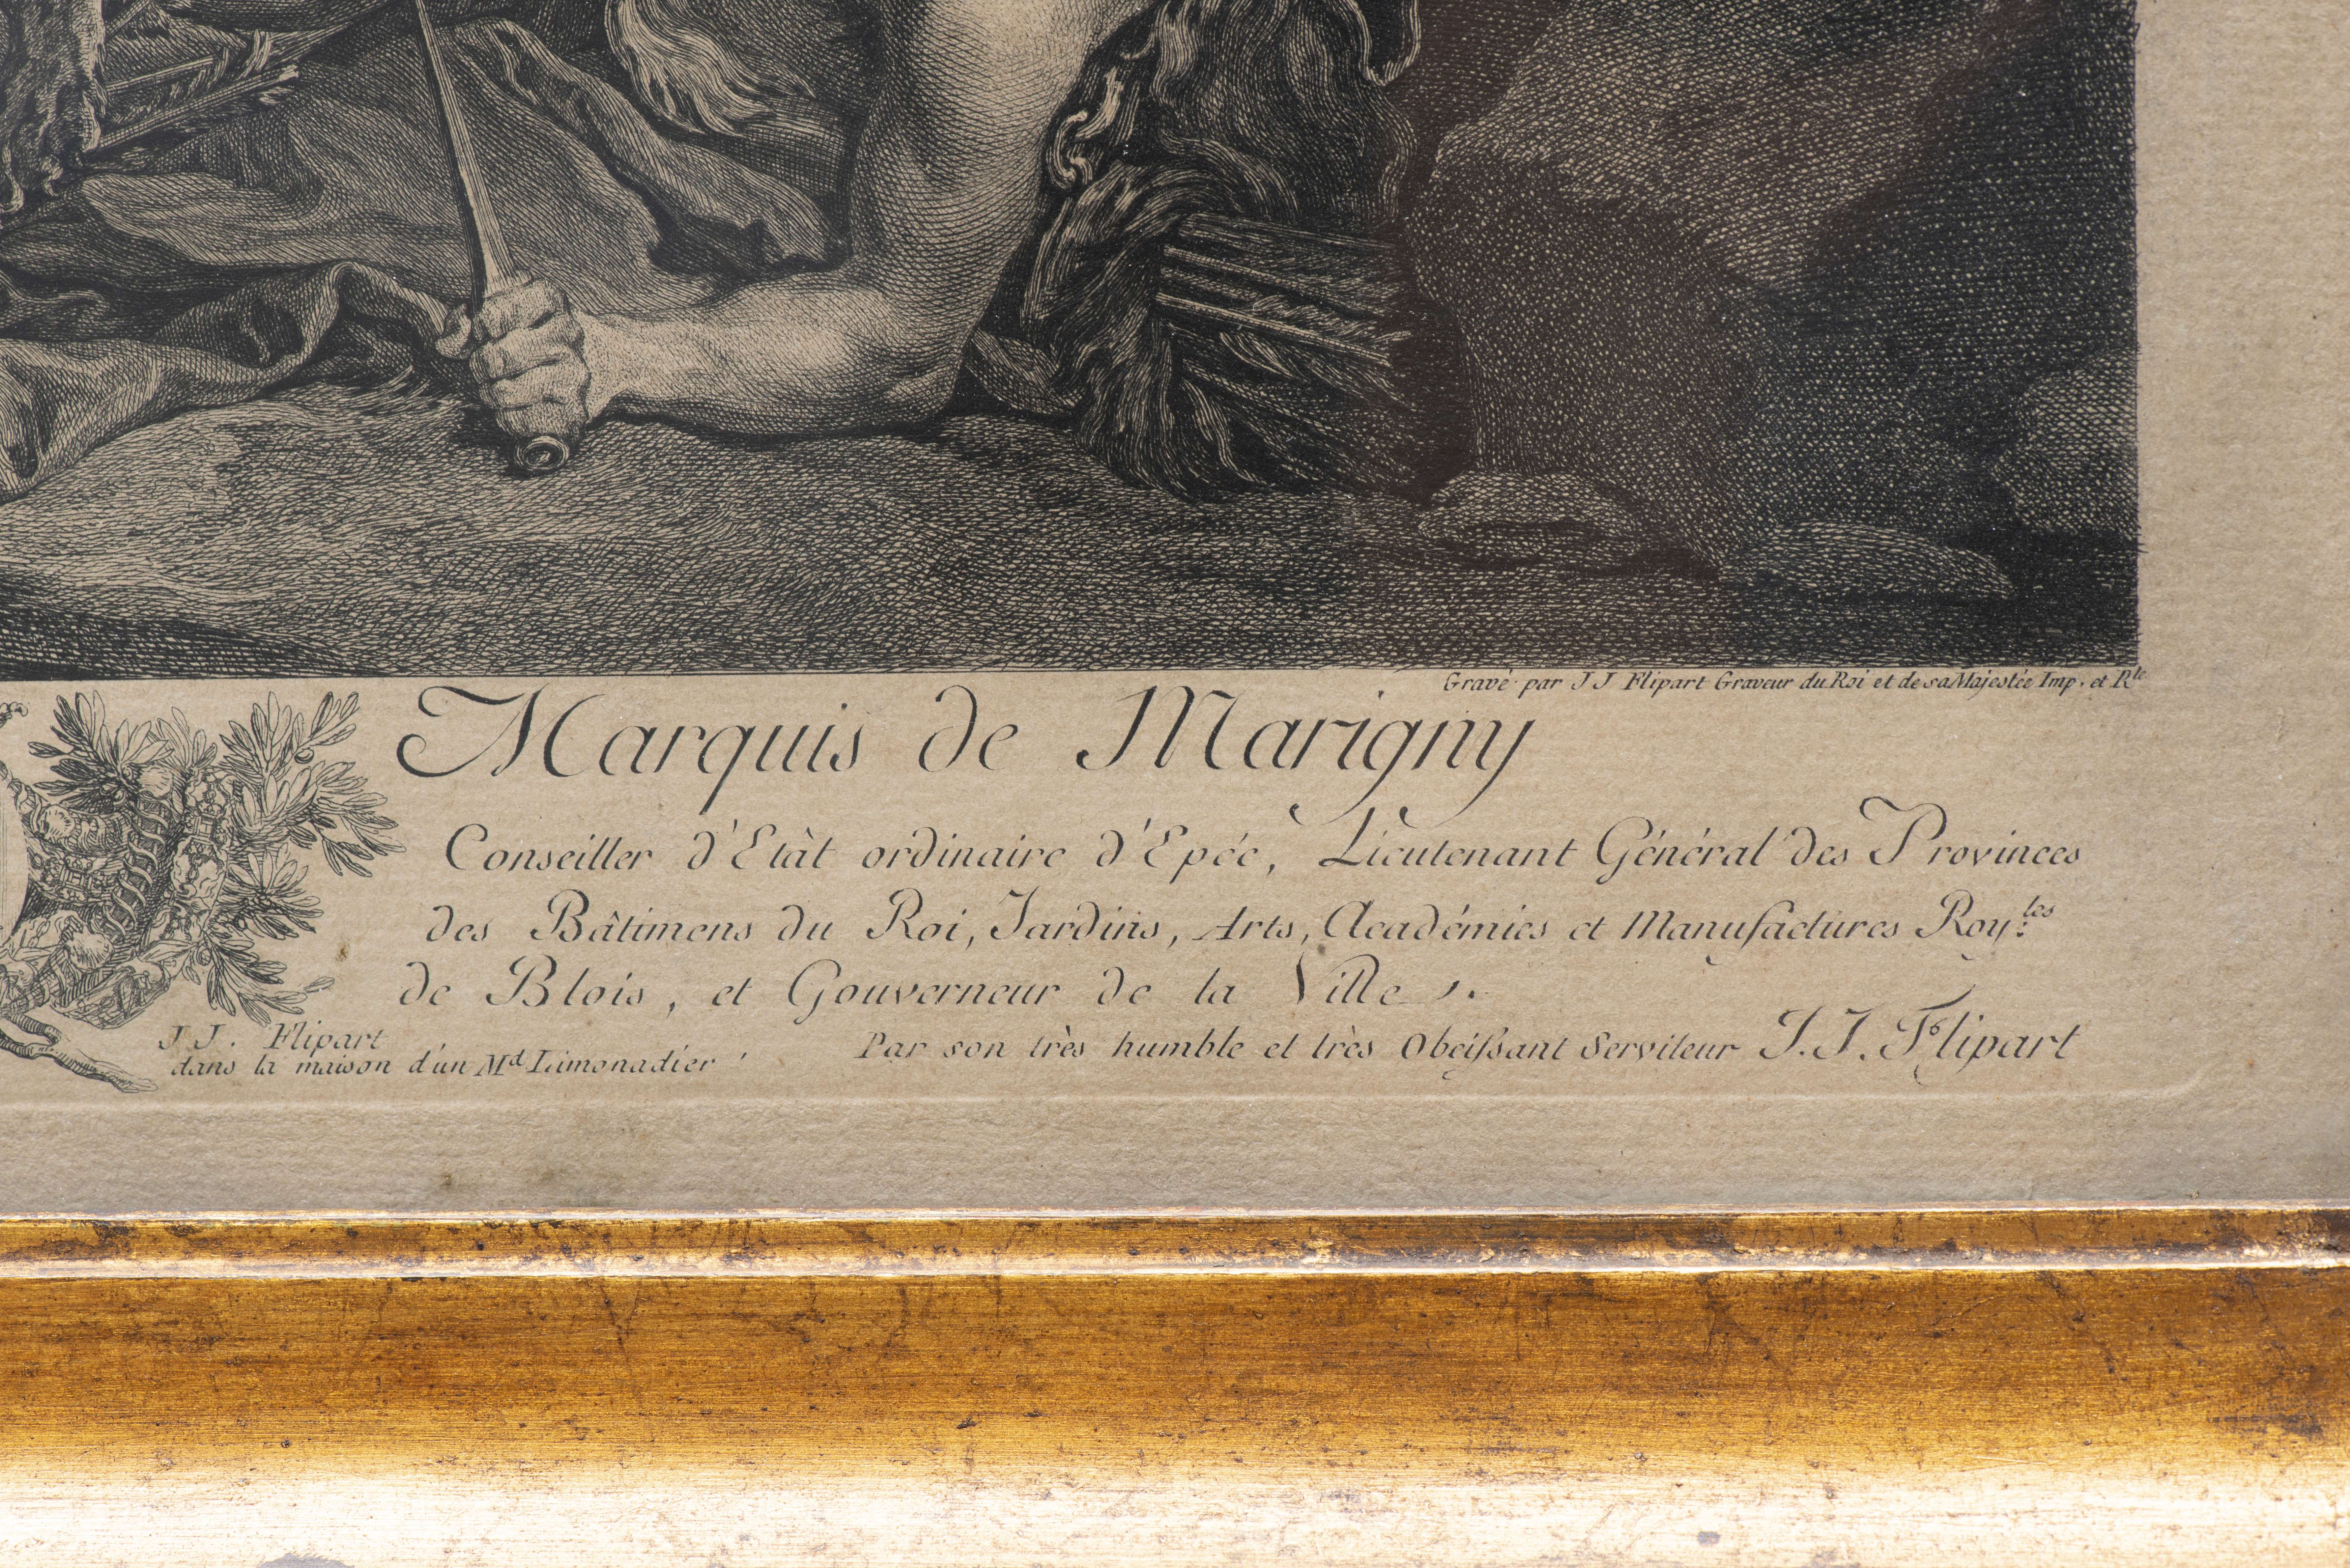 Gravé par J J Flipart Graveur du Roi et de sa Majestée Imp. et Rle
Marquis de Marigny
Conseiller d'Etàt ordinaire d'Epée, Lieutenant Général des Provinces
des Bâtimens du Roi, Jardins, Arts, Académies et Manufactures Roy.les
de Blois, et Gouverneur de la Ville
J J. Flipart
dans la maison d'un Md Limonadier
Par son très humble et très Obeissant Serviteur J. J. Flipart